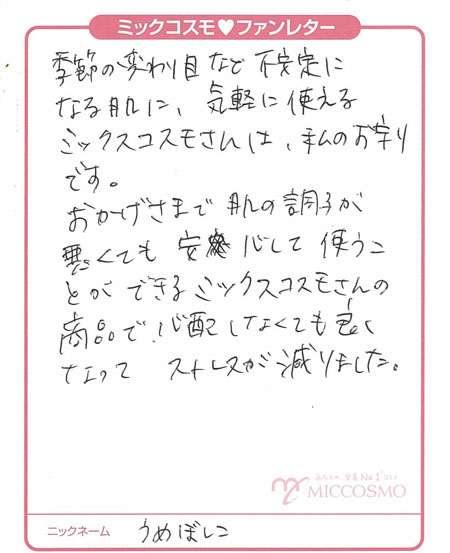 ミックコスモ♥ファンレター
季節の変わり目など不安定に
なる肌に、気軽に使える
ミックスコスモさんは、私のお守り
です。
おかげさまで肌の調子が
悪くても安心して使うこ
とができるミックスコスモさんの
商品で、心配しなくても良く
なって ストレスが減りました。
あなたの、全員No.1コスト
MICCOSMO
ニックネーム うめぼしこ